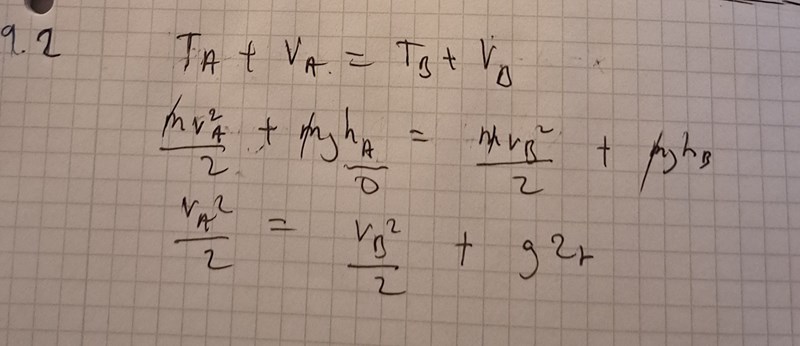 9.2 T_A + V_A = T_B + V_B
mv_A²/2 + mgh_A = mv_B²/2 + mgh_B
0
v_A²/2 = v_B²/2 + g2r